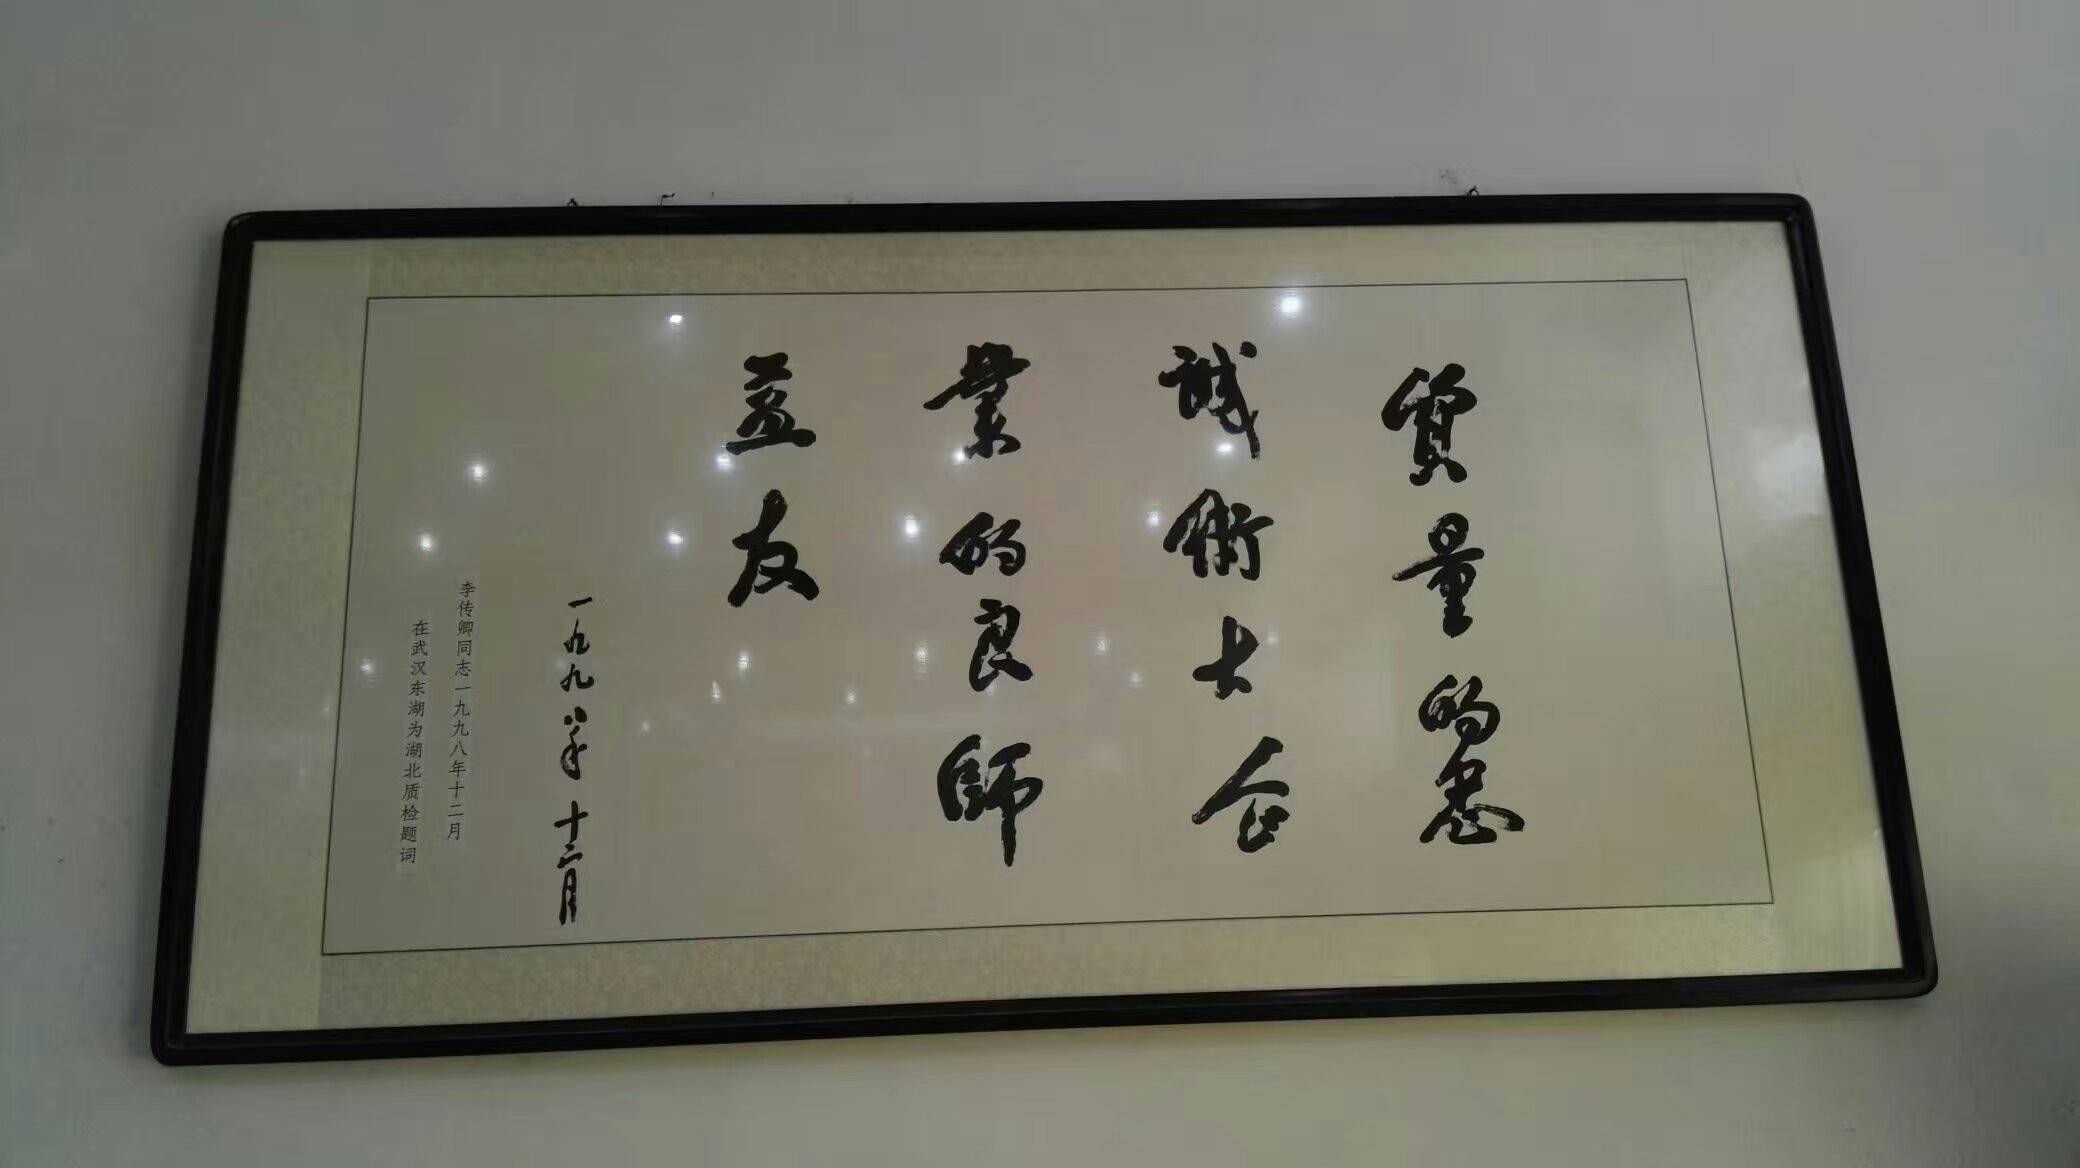 質量的忠
誠衛士企
業的良師
益友
一九九八年十二月
李传卿同志一九九八年十二月
在武汉东湖为湖北质检题词